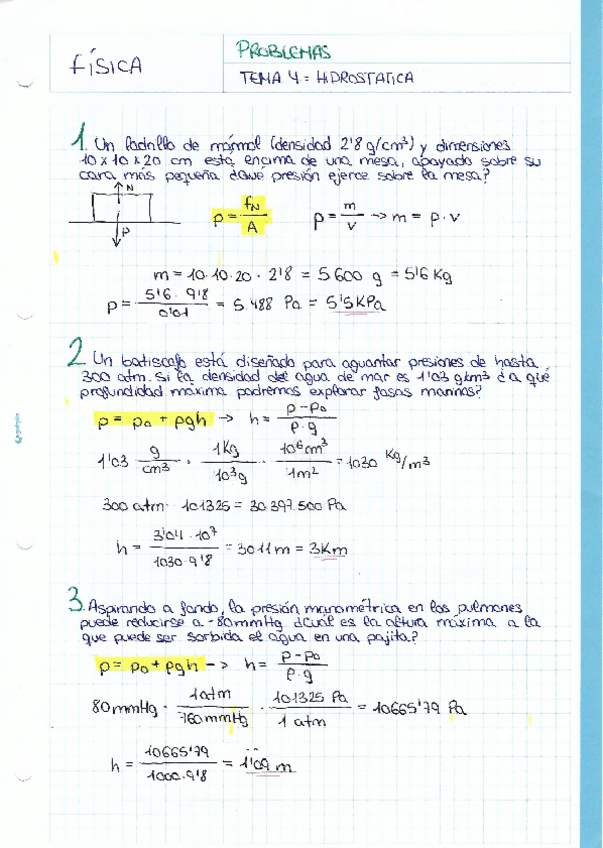 FÍSICA
PROBLEMAS
TEMA 4 = HIDROSTATICA
1. Un ladrillo de mármol (densidad 2'8 g/cm³) y dimensiones
10 x 10 x 20 cm está encima de una mesa, apoyado sobre su
cara más pequeña ¿qué presión ejerce sobre la mesa?
N
P
p = fN / A
ρ = m / v → m = ρ · v
m = 10 · 10 · 20 · 2'8 = 5600 g = 5'6 Kg
p = 5'6 · 9'8 / 0'01 = 5.488 Pa = 5'5 KPa
2. Un batiscafo está diseñado para aguantar presiones de hasta
300 atm. Si la densidad del agua de mar es 1'03 g/cm³ ¿a qué
profundidad máxima podremos explorar fosas marinas?
p = p₀ + ρgh → h = p - p₀ / ρ · g
1'03 g / cm³ · 1Kg / 10³g · 10⁶cm³ / 1m² = 1030 Kg/m³
300 atm · 101325 = 30.397.500 Pa
h = 3'04 · 10⁷ / 1030 · 9'8 = 3011 m = 3Km
3. Aspirando a fondo, la presión manométrica en los pulmones
puede reducirse a -80mmHg ¿Cuál es la altura máxima a la
que puede ser sorbida el agua en una pajita?
p = p₀ + ρgh -> h = p - p₀ / ρ · g
80 mmHg · 1atm / 760 mmHg · 101325 Pa / 1 atm = 10665'79 Pa
h = 10665'79 / 1000 · 9'8 = 1'09 m